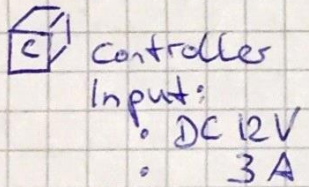 C controller
Input:
• DC 12V
• 3A